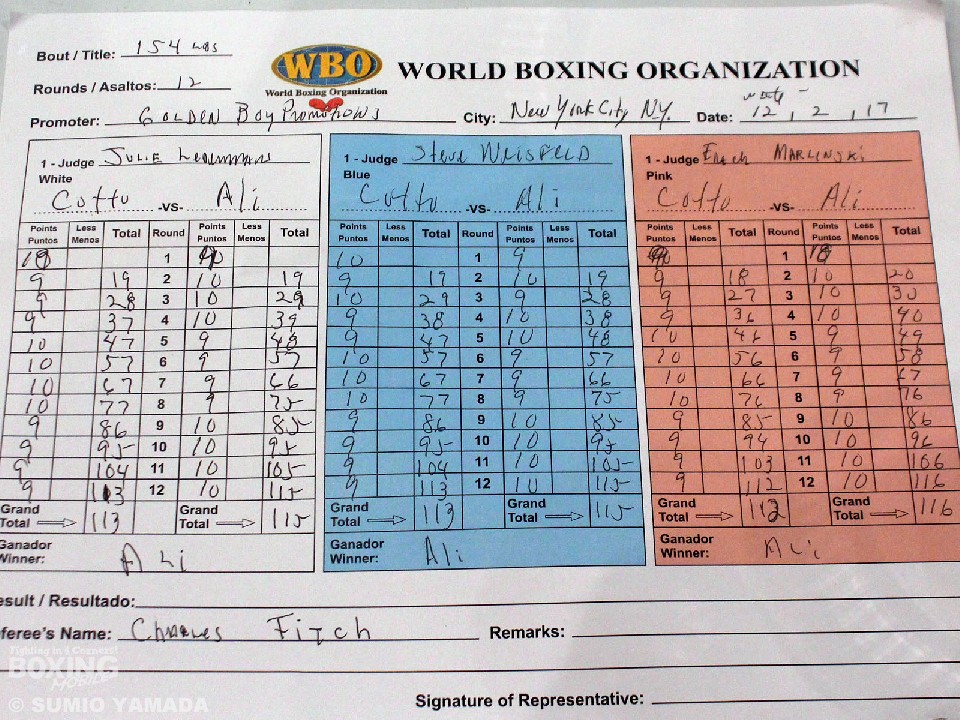 Bout / Title: 154 lbs
Rounds / Asaltos: 12
WBO
World Boxing Organization
WORLD BOXING ORGANIZATION
Promoter: GOLDEN BOY PROMOTIONS City: New York City NY. Date: 12, 2, 17
1 - Judge JULIE 1 - Judge Steve WEISFELD 1 - Judge
White Blue Pink
Cotto -VS- Ali Cotto -VS- Ali Cotto -VS- Ali
Points Less Total Round Points Less Total Points Less Total Round Points Less Total Points Less Total Round Points Less Total
Puntos Menos Puntos Menos Puntos Menos Puntos Menos Puntos Menos Puntos Menos
10 1 10 1 9 1 10
9 19 2 10 19 9 19 2 10 19 9 18 2 10 20
9 28 3 10 29 10 29 3 9 28 9 27 3 10 30
9 37 4 10 39 9 38 4 10 38 9 36 4 10 40
10 47 5 9 48 9 47 5 10 48 10 46 5 9 49
10 57 6 9 57 10 57 6 9 57 10 56 6 9 58
10 67 7 9 66 10 67 7 9 66 10 66 7 9 67
10 77 8 9 75 10 77 8 9 75 10 76 8 9 76
9 86 9 10 85 9 86 9 10 85 9 85 9 10 86
9 95 10 10 95 9 95 10 10 95 9 94 10 10 96
9 104 11 10 105 9 104 11 10 105 9 103 11 10 106
9 113 12 10 115 9 113 12 10 115 9 112 12 10 116
Grand Grand Grand Grand Grand Grand
Total 113 Total 115 Total 113 Total 115 Total 112 Total 116
Ganador Ganador Ganador
Winner: ALi Winner: Ali Winner: ALi
esult / Resultado:
feree's Name: CHARLES FITCH Remarks:
Signature of Representative:
Fighting in 4 Corners!
BOXING
MOBILE
© SUMIO YAMADA